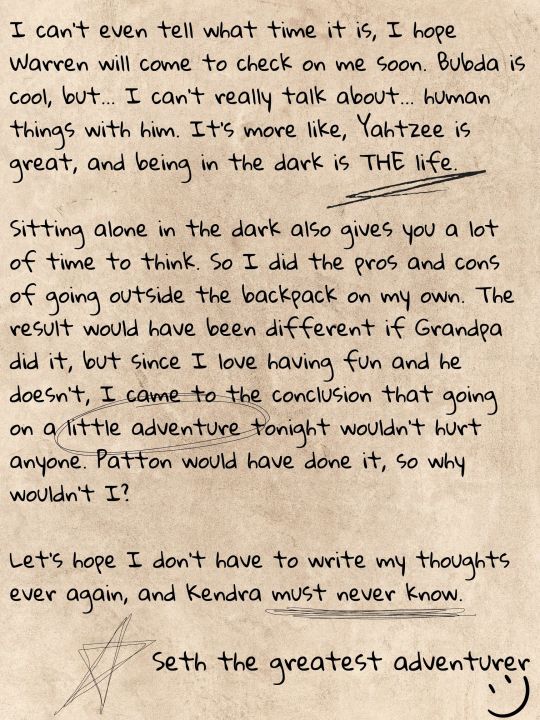 I can't even tell what time it is, I hope
Warren will come to check on me soon. Bubda is
cool, but... I can't really talk about... human
things with him. It's more like, Yahtzee is
great, and being in the dark is THE life.
Sitting alone in the dark also gives you a lot
of time to think. So I did the pros and cons
of going outside the backpack on my own. The
result would have been different if Grandpa
did it, but since I love having fun and he
doesn't, I came to the conclusion that going
on a little adventure tonight wouldn't hurt
anyone. Patton would have done it, so why
wouldn't I?
Let's hope I don't have to write my thoughts
ever again, and Kendra must never know.
Seth the greatest adventurer